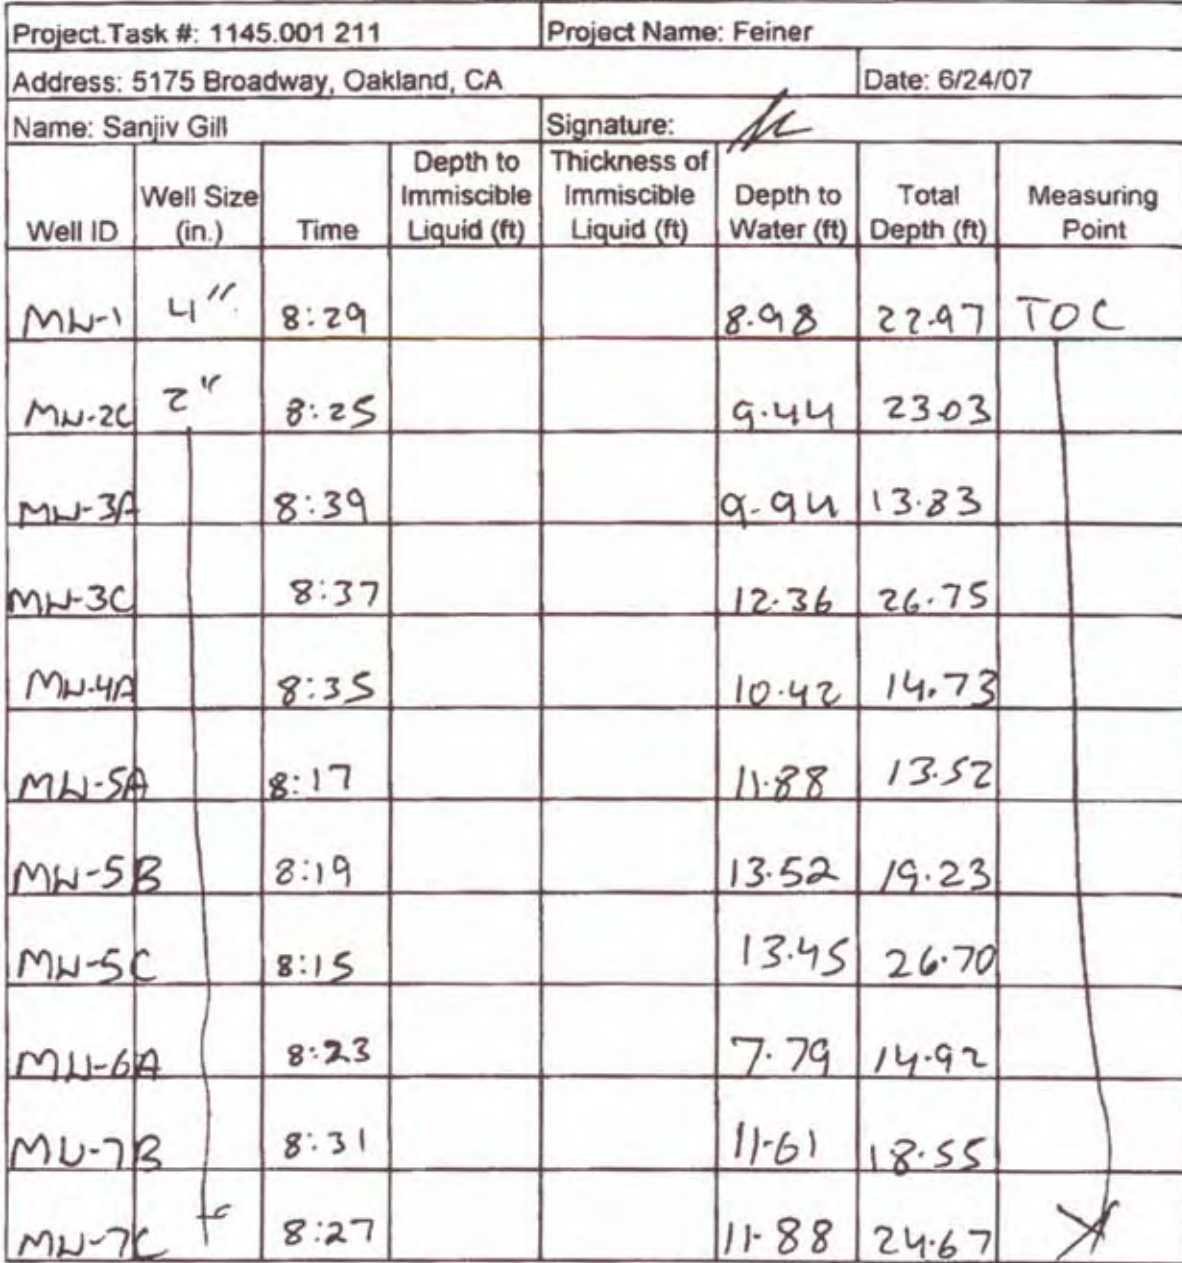 Project.Task #: 1145.001 211 Project Name: Feiner
Address: 5175 Broadway, Oakland, CA Date: 6/24/07
Name: Sanjiv Gill Signature:
Well ID Well Size (in.) Time Depth to Immiscible Liquid (ft) Thickness of Immiscible Liquid (ft) Depth to Water (ft) Total Depth (ft) Measuring Point
MW-1 4" 8:29 8.98 22.97 TOC
MW-2C 2" 8:25 9.44 23.03
MW-3A 8:39 9.94 13.83
MW-3C 8:37 12.36 26.75
MW-4A 8:35 10.42 14.73
MW-5A 8:17 11.88 13.52
MW-5B 8:19 13.52 19.23
MW-5C 8:15 13.45 26.70
MW-6A 8:23 7.79 14.92
MW-7B 8:31 11.61 18.55
MW-7C 8:27 11.88 24.67